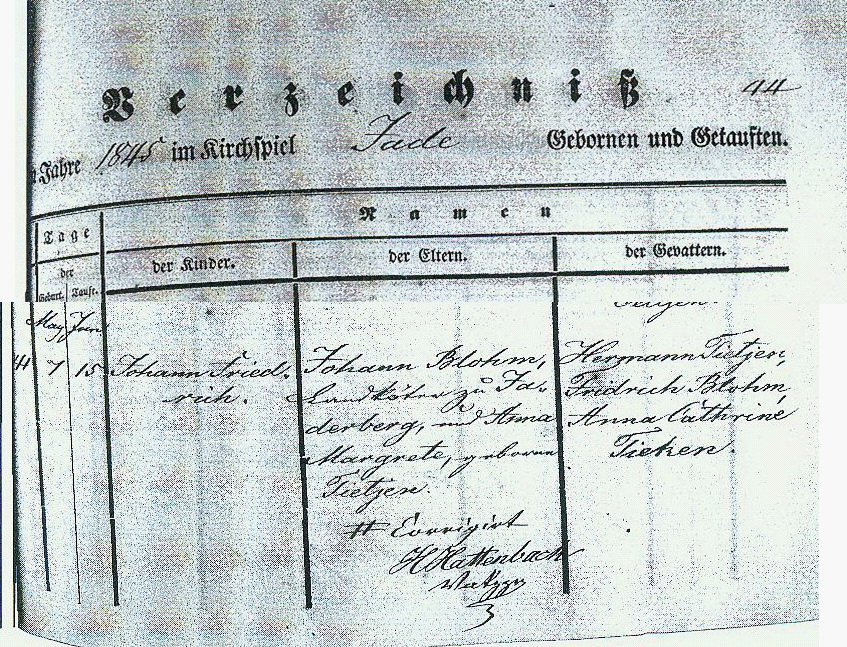 Verzeichniß
44
Jahre 1845 im Kirchspiel Jade Gebornen und Getauften.
Namen
Tage
der Kinder.
der Eltern.
der Gevattern.
der
Geburt. Taufe.
May Jun
7 15 Johann Fried- Johann Blohm, Hermann Tietjen,
rich. Landköter zu Ja- Fridrich Blohm,
derberg, und Anna Anna Cathrine
Margrete, geboren Tieken.
Tietjen.
# Corrigirt
H Hattenbach